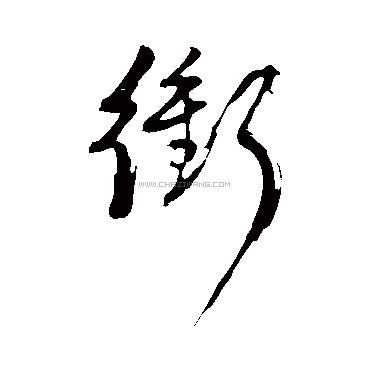 衝
WWW.CHAZIWANG.COM